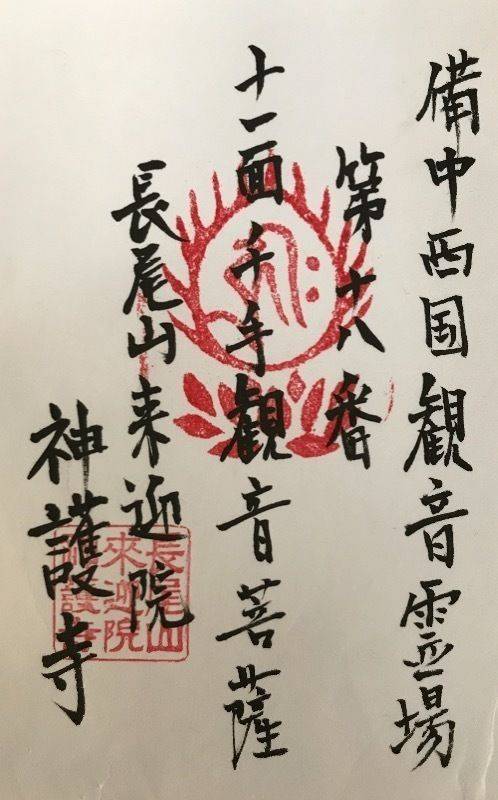 備中西国観音霊場
第十八番
十一面千手観音菩薩
長尾山来迎院
神護寺
長尾山
來迎院
神護寺